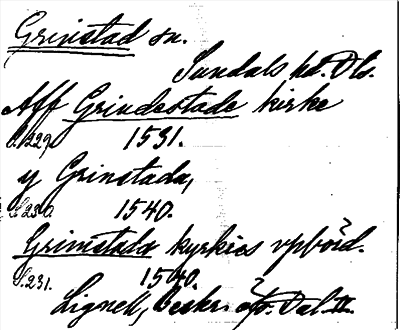 Grinstad sn.
Sundals hd. Dls.
Aff Grindestade kirke
S.229. 1531.
y Grinstada,
S.230. 1540.
Grimstada kyrkies vpbörd.
S.231. 1540.
Lignell, Beskr. Dal. II.